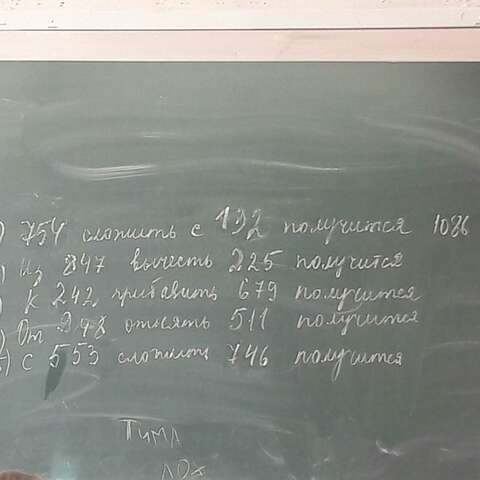 ) 754 сложить с 192 получится 1086
) Из 847 вычесть 225 получится
) К 242 прибавить 679 получится
) От 998 отнять 511 получится
) С 553 сложить 746 получится
ТИМА
ЛОХ